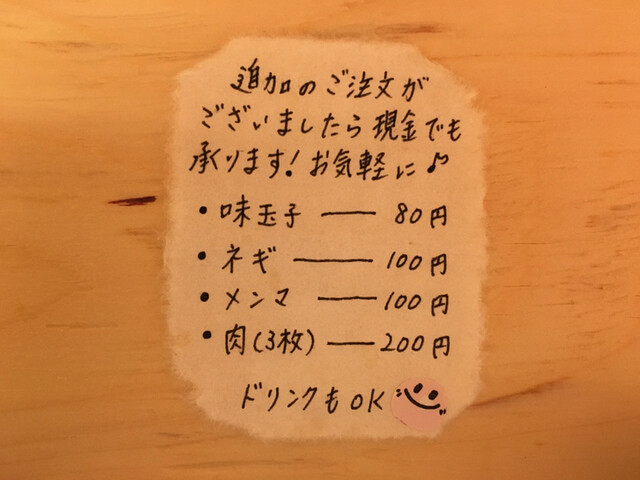 追加のご注文が
ございましたら現金でも
承ります!お気軽に♪
・味玉子 ― 80円
・ネギ ― 100円
・メンマ ― 100円
・肉(3枚) ― 200円
ドリンクもOK